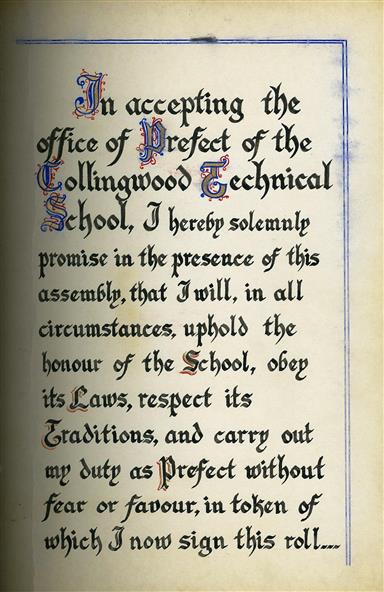 In accepting the
office of Prefect of the
Collingwood Technical
School, I hereby solemnly
promise in the presence of this
assembly, that I will, in all
circumstances, uphold the
honour of the School, obey
its Laws, respect its
Traditions, and carry out
my duty as Prefect without
fear or favour, in token of
which I now sign this roll....